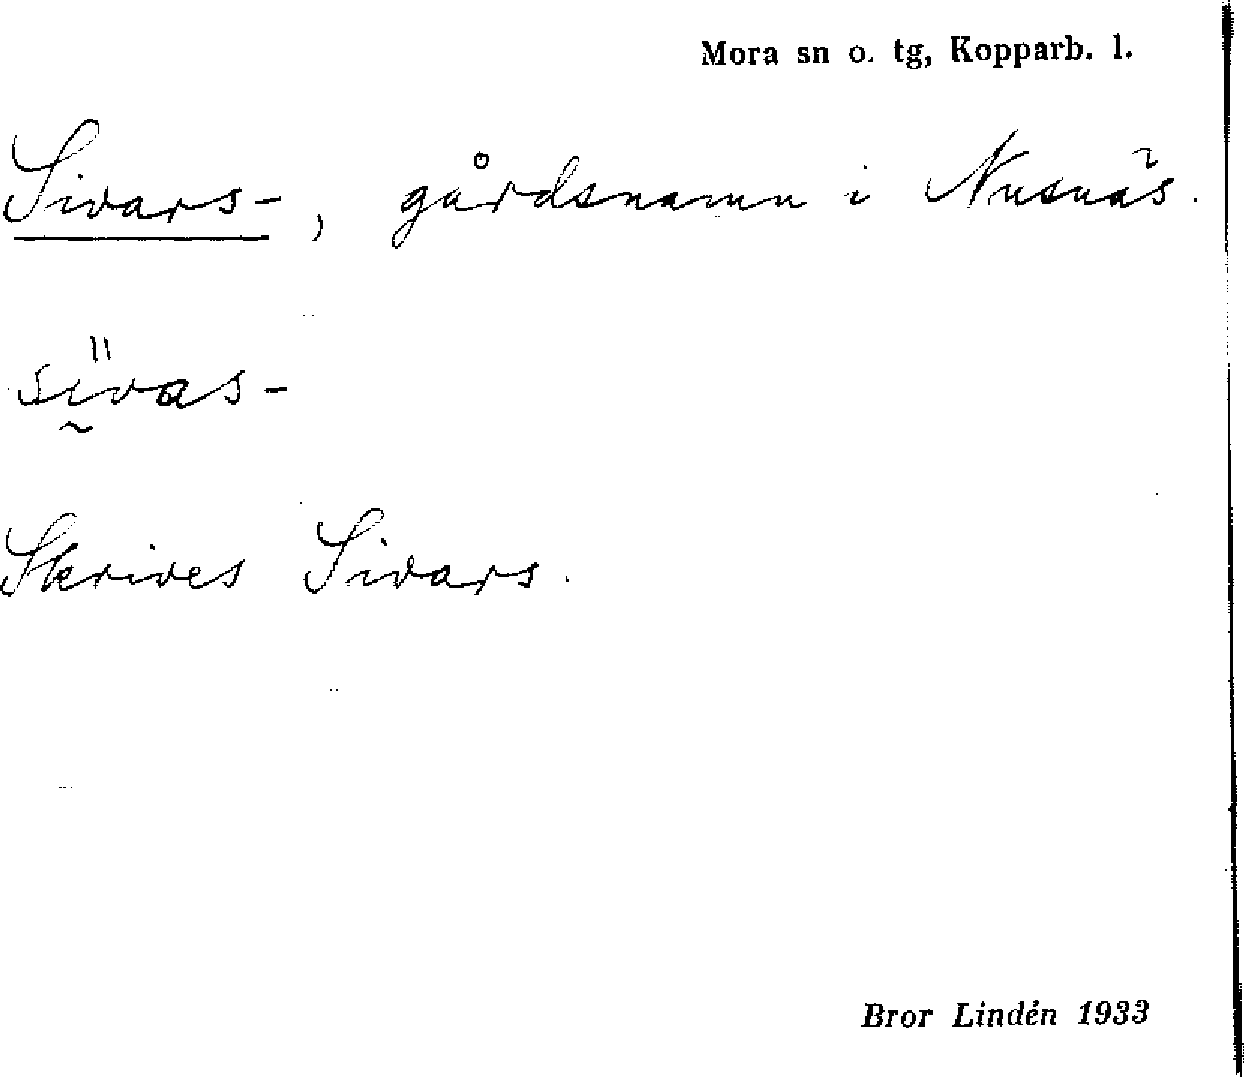 Mora sn o. tg, Kopparb. l.
Sivars-, gårdsnamn i Nusnäs.
sḭ̎vas-
Skrives Sivars.
Bror Lindén 1933